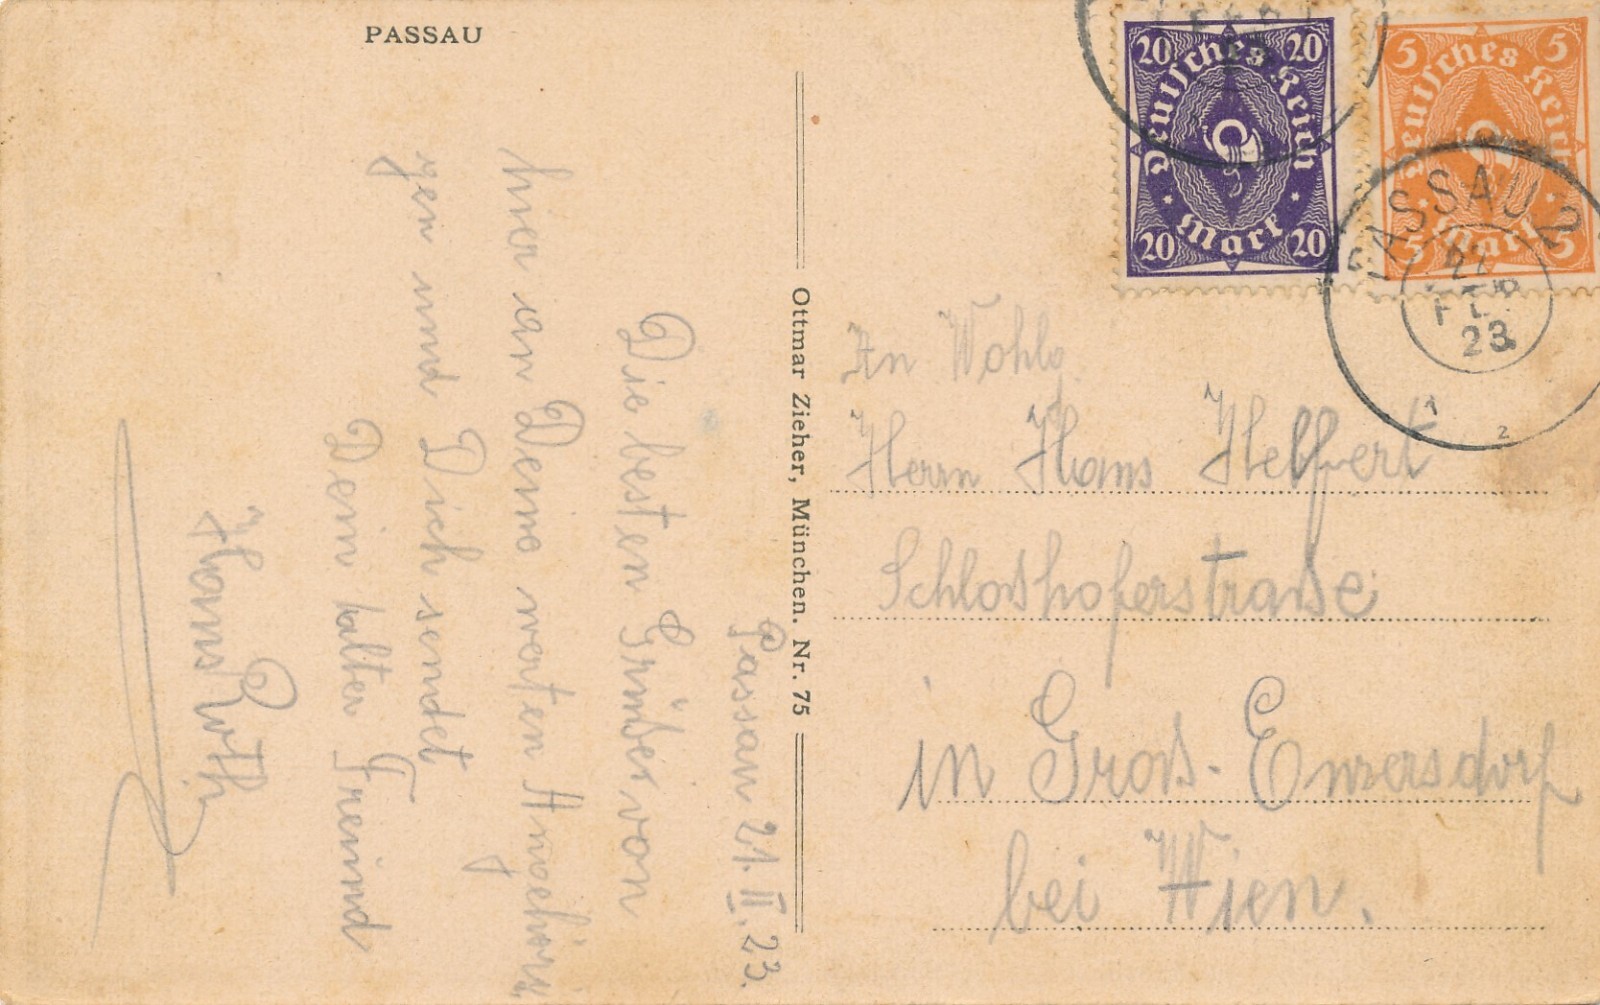 PASSAU
Passau 21. II. 23.
Die besten Grüße von
hier an Deine werten Angehöri
gen und Dich sendet
Dein alter Freund
Hans Roth
Ottmar Zieher, München. Nr. 75
20 20
Deutsches Reich
Mark
20 20
5 5
Deutsches Reich
Mark
5 5
PASSAU 2
21
FEB
23
1
2
An Wohlg.
Herrn Hans Helfert
Schloßhoferstraße
in Groß-Enzersdorf
bei Wien.